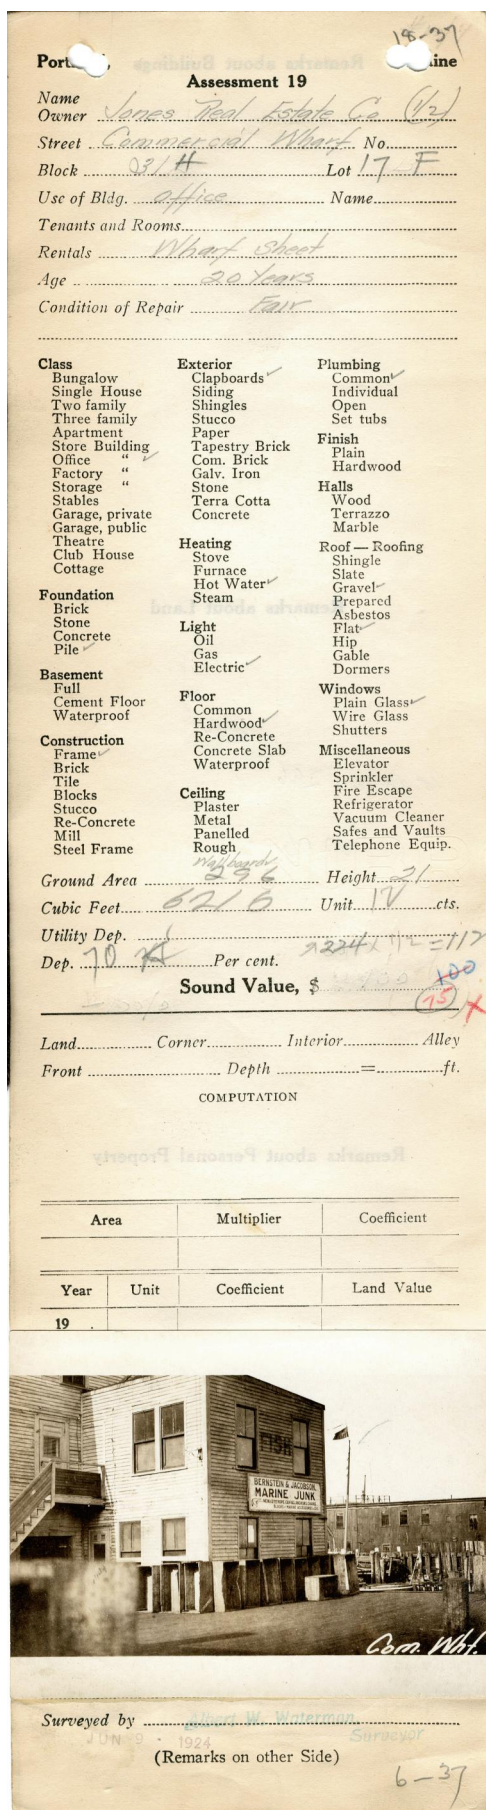 18-37
Portland, Maine
Assessment 19
Name
Owner Jones Real Estate Co (1/2)
Street Commercial Wharf No.
Block 031 H Lot 17-F
Use of Bldg. office Name
Tenants and Rooms
Rentals Wharf Sheet
Age 20 Years
Condition of Repair Fair
Class
Bungalow
Single House
Two family
Three family
Apartment
Store Building
Office "
Factory "
Storage "
Stables
Garage, private
Garage, public
Theatre
Club House
Cottage
Foundation
Brick
Stone
Concrete
Pile
Basement
Full
Cement Floor
Waterproof
Construction
Frame
Brick
Tile
Blocks
Stucco
Re-Concrete
Mill
Steel Frame
Exterior
Clapboards
Siding
Shingles
Stucco
Paper
Tapestry Brick
Com. Brick
Galv. Iron
Stone
Terra Cotta
Concrete
Heating
Stove
Furnace
Hot Water
Steam
Light
Oil
Gas
Electric
Floor
Common
Hardwood
Re-Concrete
Concrete Slab
Waterproof
Ceiling
Plaster
Metal
Panelled
Rough
Wallboard
Plumbing
Common
Individual
Open
Set tubs
Finish
Plain
Hardwood
Halls
Wood
Terrazzo
Marble
Roof — Roofing
Shingle
Slate
Gravel
Prepared
Asbestos
Flat
Hip
Gable
Dormers
Windows
Plain Glass
Wire Glass
Shutters
Miscellaneous
Elevator
Sprinkler
Fire Escape
Refrigerator
Vacuum Cleaner
Safes and Vaults
Telephone Equip.
Ground Area 296 Height 21
Cubic Feet 6216 Unit 12 cts.
Utility Dep.
Dep. 70 Per cent. 224 x 1/2 = 112
Sound Value, $ 100
75
Land Corner Interior Alley
Front Depth = ft.
COMPUTATION
Area Multiplier Coefficient
Year Unit Coefficient Land Value
19 .
FISH
BERNSTEIN & JACOBSON
MARINE JUNK
Com. Whf.
Surveyed by Albert W. Waterman
JUN 9 - 1924 Surveyor
(Remarks on other Side)
6-37